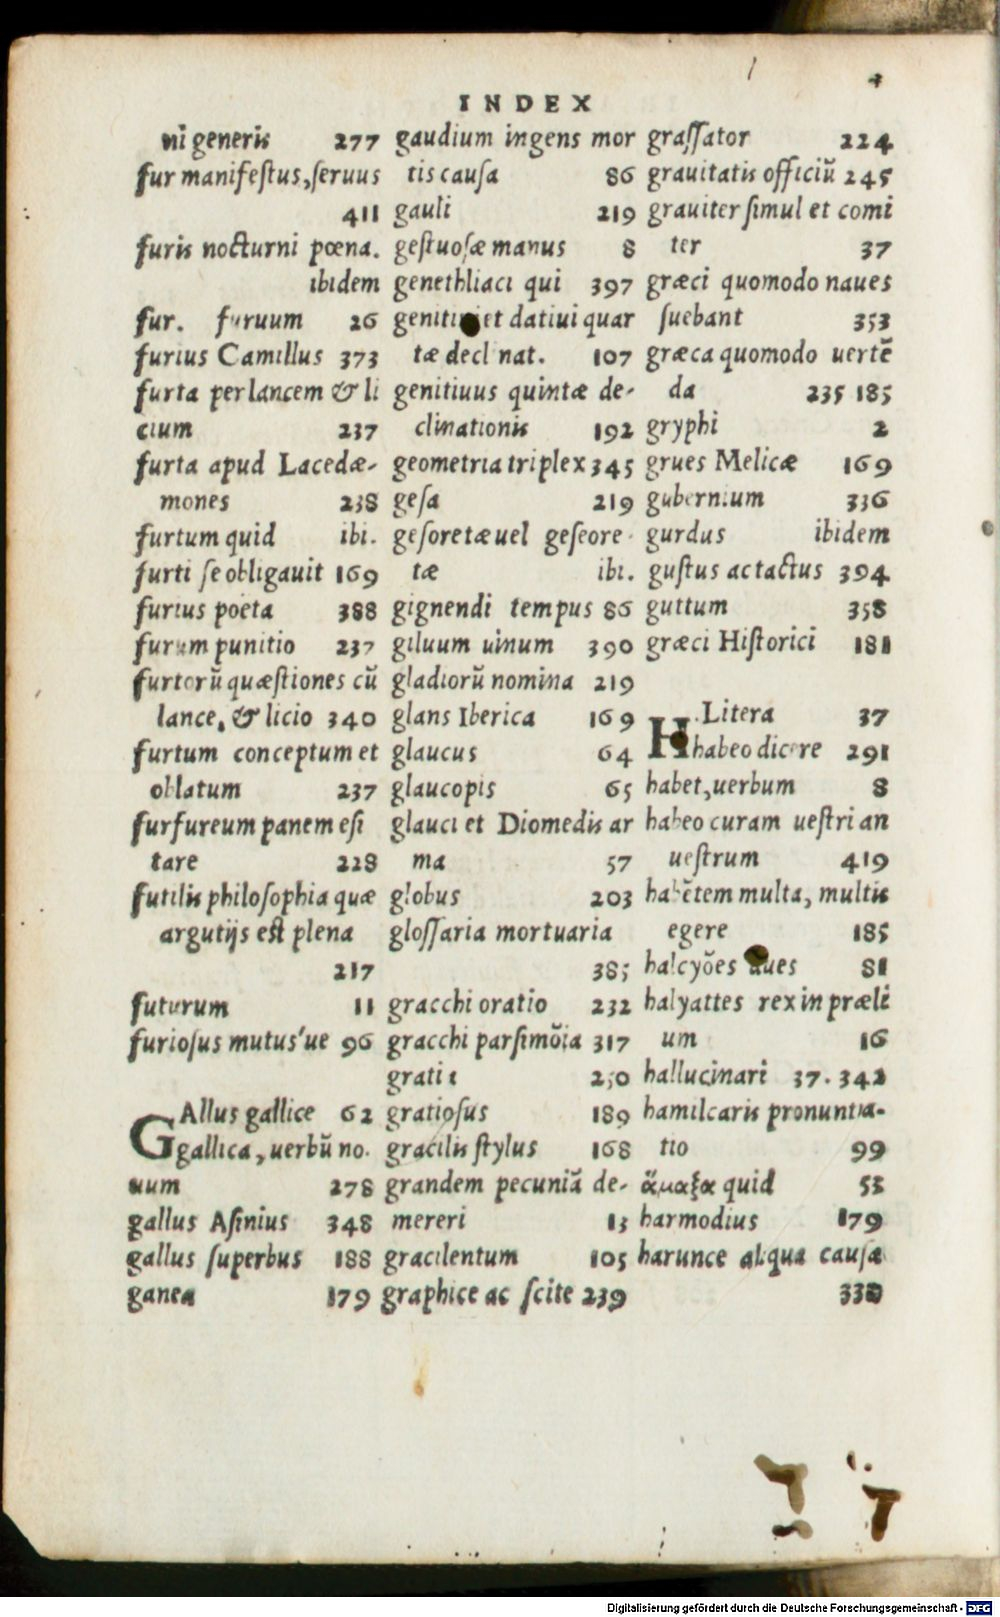 INDEX
ni generis 277
fur manifestus, seruus
411
furis nocturni pœna.
ibidem
fur. furuum 26
furius Camillus 373
furta per lancem & li
cium 237
furta apud Lacedæ-
mones 238
furtum quid ibi.
furti se obligauit 169
furius poeta 388
furum punitio 237
furtorũ quæstiones cũ
lance, & licio 340
furtum conceptum et
oblatum 237
furfureum panem esi
tare 228
futilis philosophia quæ
argutijs est plena
217
futurum 11
furiosus mutus'ue 96
GAllus gallice 62
gallica, uerbũ no.
uum 278
gallus Asinius 348
gallus superbus 188
ganea 179
gaudium ingens mor
tis causa 86
gauli 219
gestuosæ manus 8
genethliaci qui 397
genitiui et datiui quar
tæ declinat. 107
genitiuus quintæ de-
clinationis 192
geometria triplex 345
gesa 219
gesoretæ uel geseore-
tæ ibi.
gignendi tempus 86
giluum uinum 390
gladiorũ nomina 219
glans Iberica 169
glaucus 64
glaucopis 65
glauci et Diomedis ar
ma 57
globus 203
glossaria mortuaria
385
gracchi oratio 232
gracchi parsimõia 317
gratiosus 189
gracilis stylus 168
grandem pecuniã de-
mereri 13
gracilentum 105
graphice ac scite 239
grassator 224
grauitatis officiũ 245
grauiter simul et comi
ter 37
græci quomodo naues
suebant 353
græca quomodo uertẽ
da 235 185
gryphi 2
grues Melicæ 169
gubernium 336
gurdus ibidem
gustus ac tactus 394
guttum 358
græci Historici 181
H Litera 37
habeo dicere 291
habet, uerbum 8
habeo curam uestri an
uestrum 419
habẽtem multa, multis
egere 185
halcyões aues 81
halyattes rex in præli
um 16
hallucinari 37. 342
hamilcaris pronuntia-
tio 99
ἅμαξα quid 53
harmodius 179
harunce aliqua causa
Digitalisierung gefördert durch die Deutsche Forschungsgemeinschaft - DFG